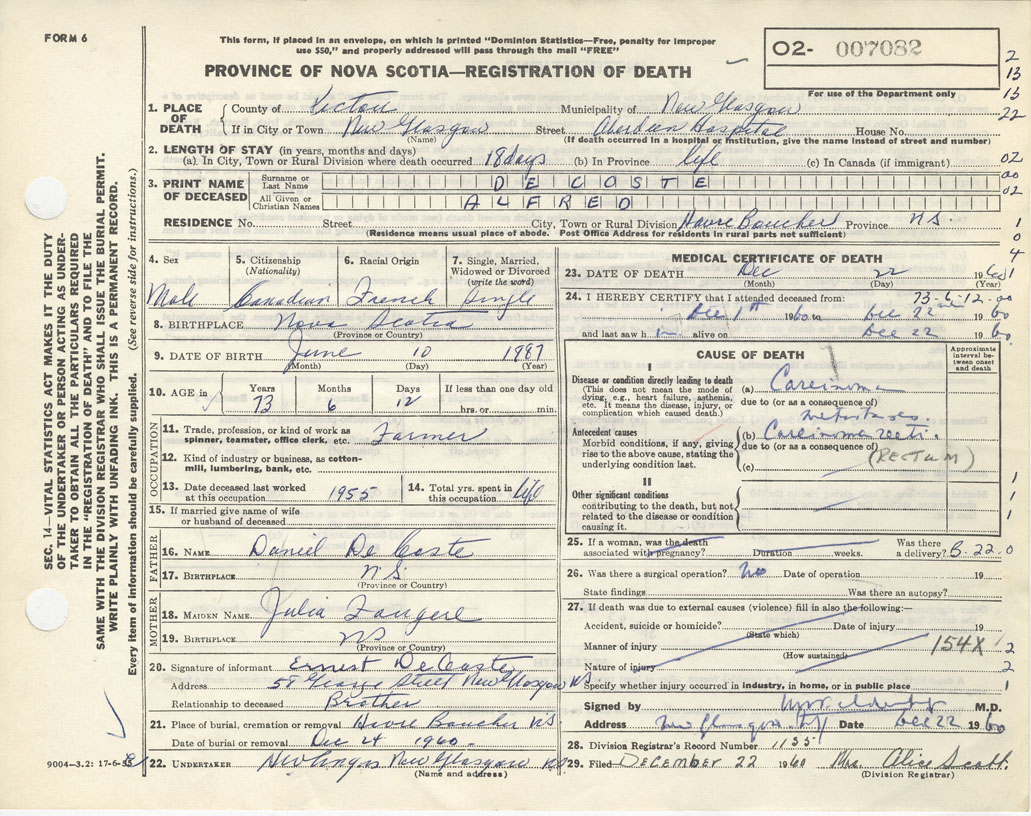 FORM 6
This form, if placed in an envelope, on which is printed "Dominion Statistics—Free, penalty for improper
use $50," and properly addressed will pass through the mail "FREE"
PROVINCE OF NOVA SCOTIA—REGISTRATION OF DEATH
02- 007082
For use of the Department only
2
13
13
22
02
00
02
1
0
4
1
SEC. 14—VITAL STATISTICS ACT MAKES IT THE DUTY
OF THE UNDERTAKER OR PERSON ACTING AS UNDER-
TAKER TO OBTAIN ALL THE PARTICULARS REQUIRED
IN THE "REGISTRATION OF DEATH" AND TO FILE THE
SAME WITH THE DIVISION REGISTRAR WHO SHALL ISSUE THE BURIAL PERMIT.
WRITE PLAINLY WITH UNFADING INK. THIS IS A PERMANENT RECORD.
Every item of information should be carefully supplied. (See reverse side for instructions.)
1. PLACE OF DEATH
County of Pictou Municipality of New Glasgow
If in City or Town New Glasgow Street Aberdeen Hospital House No.
(Name) (If death occurred in a hospital or institution, give the name instead of street and number)
2. LENGTH OF STAY (in years, months and days)
(a). In City, Town or Rural Division where death occurred 18 days (b) in Province life (c) In Canada (if immigrant)
3. PRINT NAME OF DECEASED
Surname or Last Name DE COSTE
All Given or Christian Names ALFRED
RESIDENCE No. Street City, Town or Rural Division Havre Boucher Province N.S.
(Residence means usual place of abode. Post Office Address for residents in rural parts not sufficient)
4. Sex 5. Citizenship (Nationality) 6. Racial Origin 7. Single, Married, Widowed or Divorced (write the word)
Male Canadian French Single
8. BIRTHPLACE Nova Scotia
(Province or Country)
9. DATE OF BIRTH June 10 1887
(Month) (Day) (Year)
10. AGE in Years Months Days If less than one day old
73 6 12 hrs. or min.
OCCUPATION
11. Trade, profession, or kind of work as
spinner, teamster, office clerk, etc. Farmer
12. Kind of industry or business, as cotton-
mill, lumbering, bank, etc.
13. Date deceased last worked at this occupation 1955
14. Total yrs. spent in this occupation life
15. If married give name of wife
or husband of deceased
FATHER
16. NAME Daniel De Coste
17. BIRTHPLACE N.S.
(Province or Country)
MOTHER
18. MAIDEN NAME Julia
19. BIRTHPLACE NS
(Province or Country)
20. Signature of informant Ernest De Coste
Address George Street New Glasgow NS
Relationship to deceased Brother
21. Place of burial, cremation or removal Havre Boucher N.S.
Date of burial or removal Dec 24 1960
9004—3.2: 17-6-
22. UNDERTAKER New Glasgow NS
(Name and address)
MEDICAL CERTIFICATE OF DEATH
23. DATE OF DEATH Dec 22 1960
(Month) (Day)
24. I HEREBY CERTIFY that I attended deceased from: 73-6-12-00
Dec 1st 1960 to Dec 22 1960
and last saw him alive on Dec 22 1960
CAUSE OF DEATH
Approximate interval between onset and death
I
Disease or condition directly leading to death
(This does not mean the mode of
dying, e.g., heart failure, asthenia,
etc. It means the disease, injury, or
complication which caused death.)
(a) Carcinoma
due to (or as a consequence of)
metastases.
Antecedent causes
Morbid conditions, if any, giving
rise to the above cause, stating the
underlying condition last.
(b) Carcinoma recti.
due to (or as a consequence of)
(RECTUM)
(c)
1
II
Other significant conditions
contributing to the death, but not
related to the disease or condition
causing it.
1
1
25. If a woman, was the death
associated with pregnancy? Duration weeks. Was there a delivery? 3-22-0
26. Was there a surgical operation? No Date of operation 19
State findings Was there an autopsy?
27. If death was due to external causes (violence) fill in also the following:—
Accident, suicide or homicide? Date of injury 19
(State which)
Manner of injury 154X 2
(How sustained)
Nature of injury 2
Specify whether injury occurred in industry, in home, or in public place 1
Signed by M.D.
Address New Glasgow Date Dec 22 1960
28. Division Registrar's Record Number 1155
29. Filed DECEMBER 22 1960 Mrs. Alice Scott
(Division Registrar)